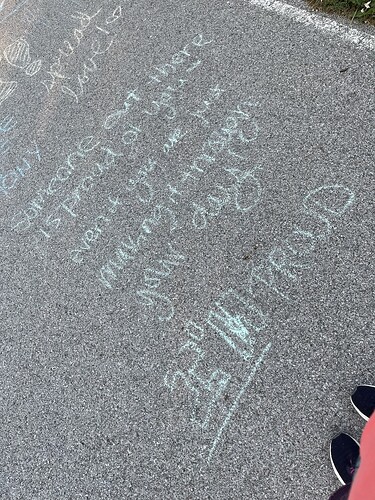 spread
love!
someone out there
is proud of you
even if you are just
making it through
your days
PROUD